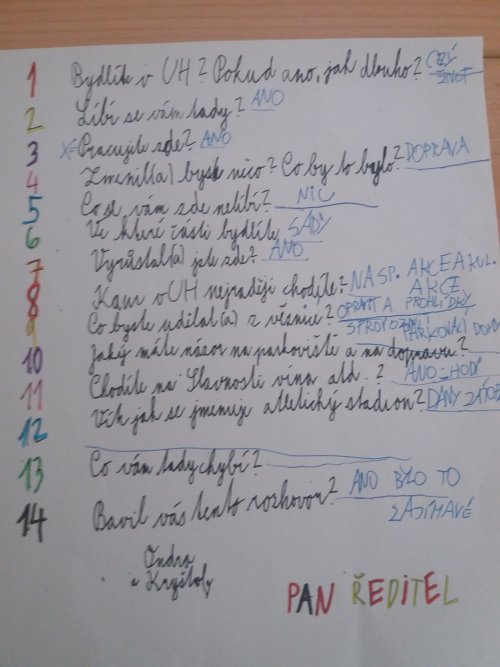 1 Bydlíte v UH? Pokud ano, jak dlouho? CELÝ
ŽIVOT
2 Líbí se vám tady? ANO
3 Pracujete zde? ANO
4 Změnil(a) byste něco? Co by to bylo? DOPRAVA
5 Co se vám zde nelíbí? NIC
6 Ve které části bydlíte SADY
7 Vyrůstal(a) jste zde? ANO
8 Kam v UH nejraději chodíte? NA SP. AKCE A KUL.
AKCE
9 Co byste udělal(a) z věznice? OPRAVIT A PROHLÍDKY
10 Jaký máte názor na parkoviště a na dopravu? PARKOVACÍ
11 Chodíte na Slavnosti vína atd.? ANO
12 Víte jak se jmenuje atletický stadion? DANY
13 Co vám tady chybí?
14 Bavil vás tento rozhovor? ANO BYLO TO
ZAJÍMAVÉ
Ondra
a Kryštof
PAN ŘEDITEL